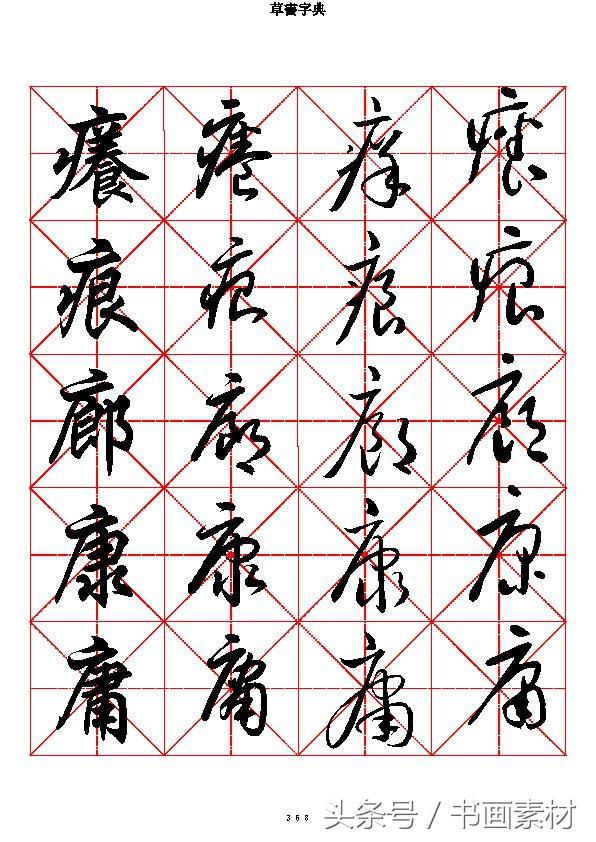 草書字典
癢 癢 痒 癢
痕 痕 痕 痕
廊 廊 廊 廊
康 康 康 康
庸 庸 庸 庸
368
头条号 / 书画素材